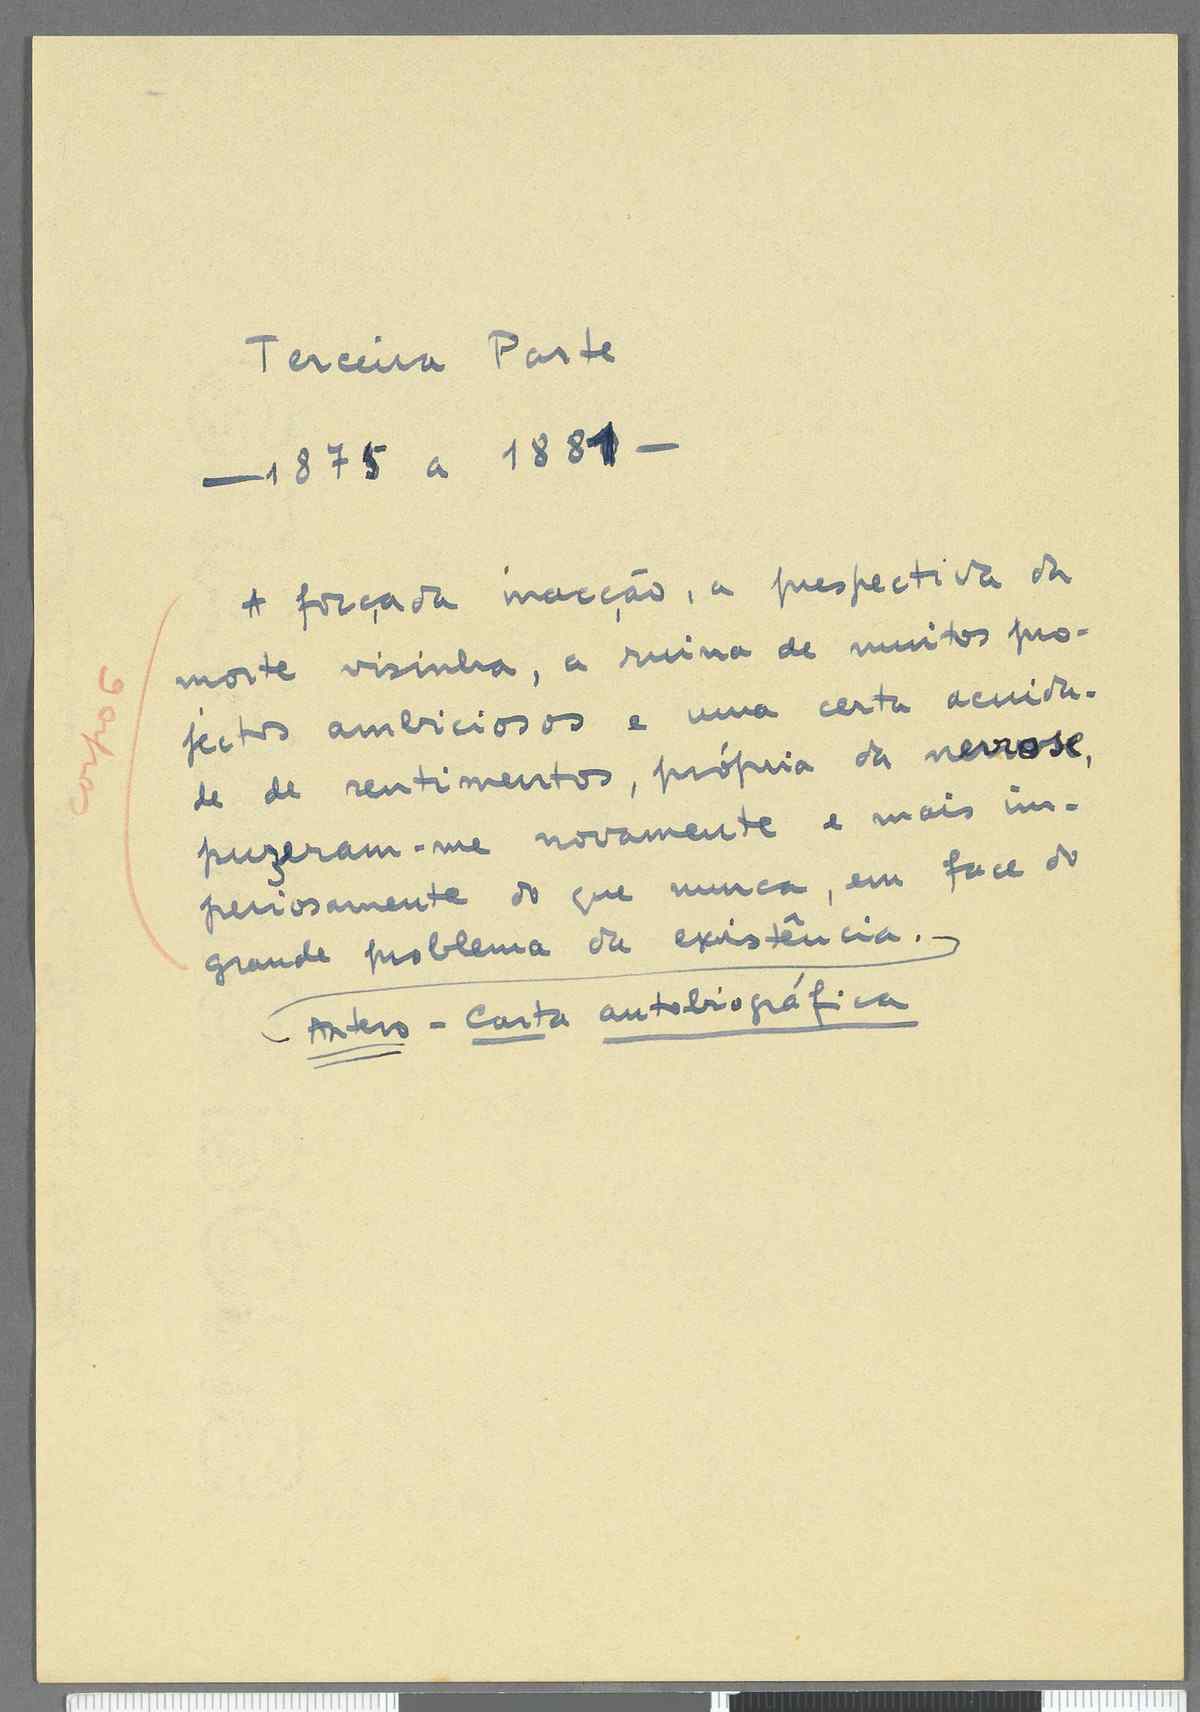 Terceira Parte
—1875 a 1881—
A forçada inacção, a prespectiva da
morte visinha, a ruina de muitos pro-
jectos ambiciosos e uma certa acuida-
de de sentimentos, própria da nevrose,
puzeram-me novamente e mais im-
periosamente do que nunca, em face do
grande problema da existência.
Antero - Carta autobiográfica
corpo 6